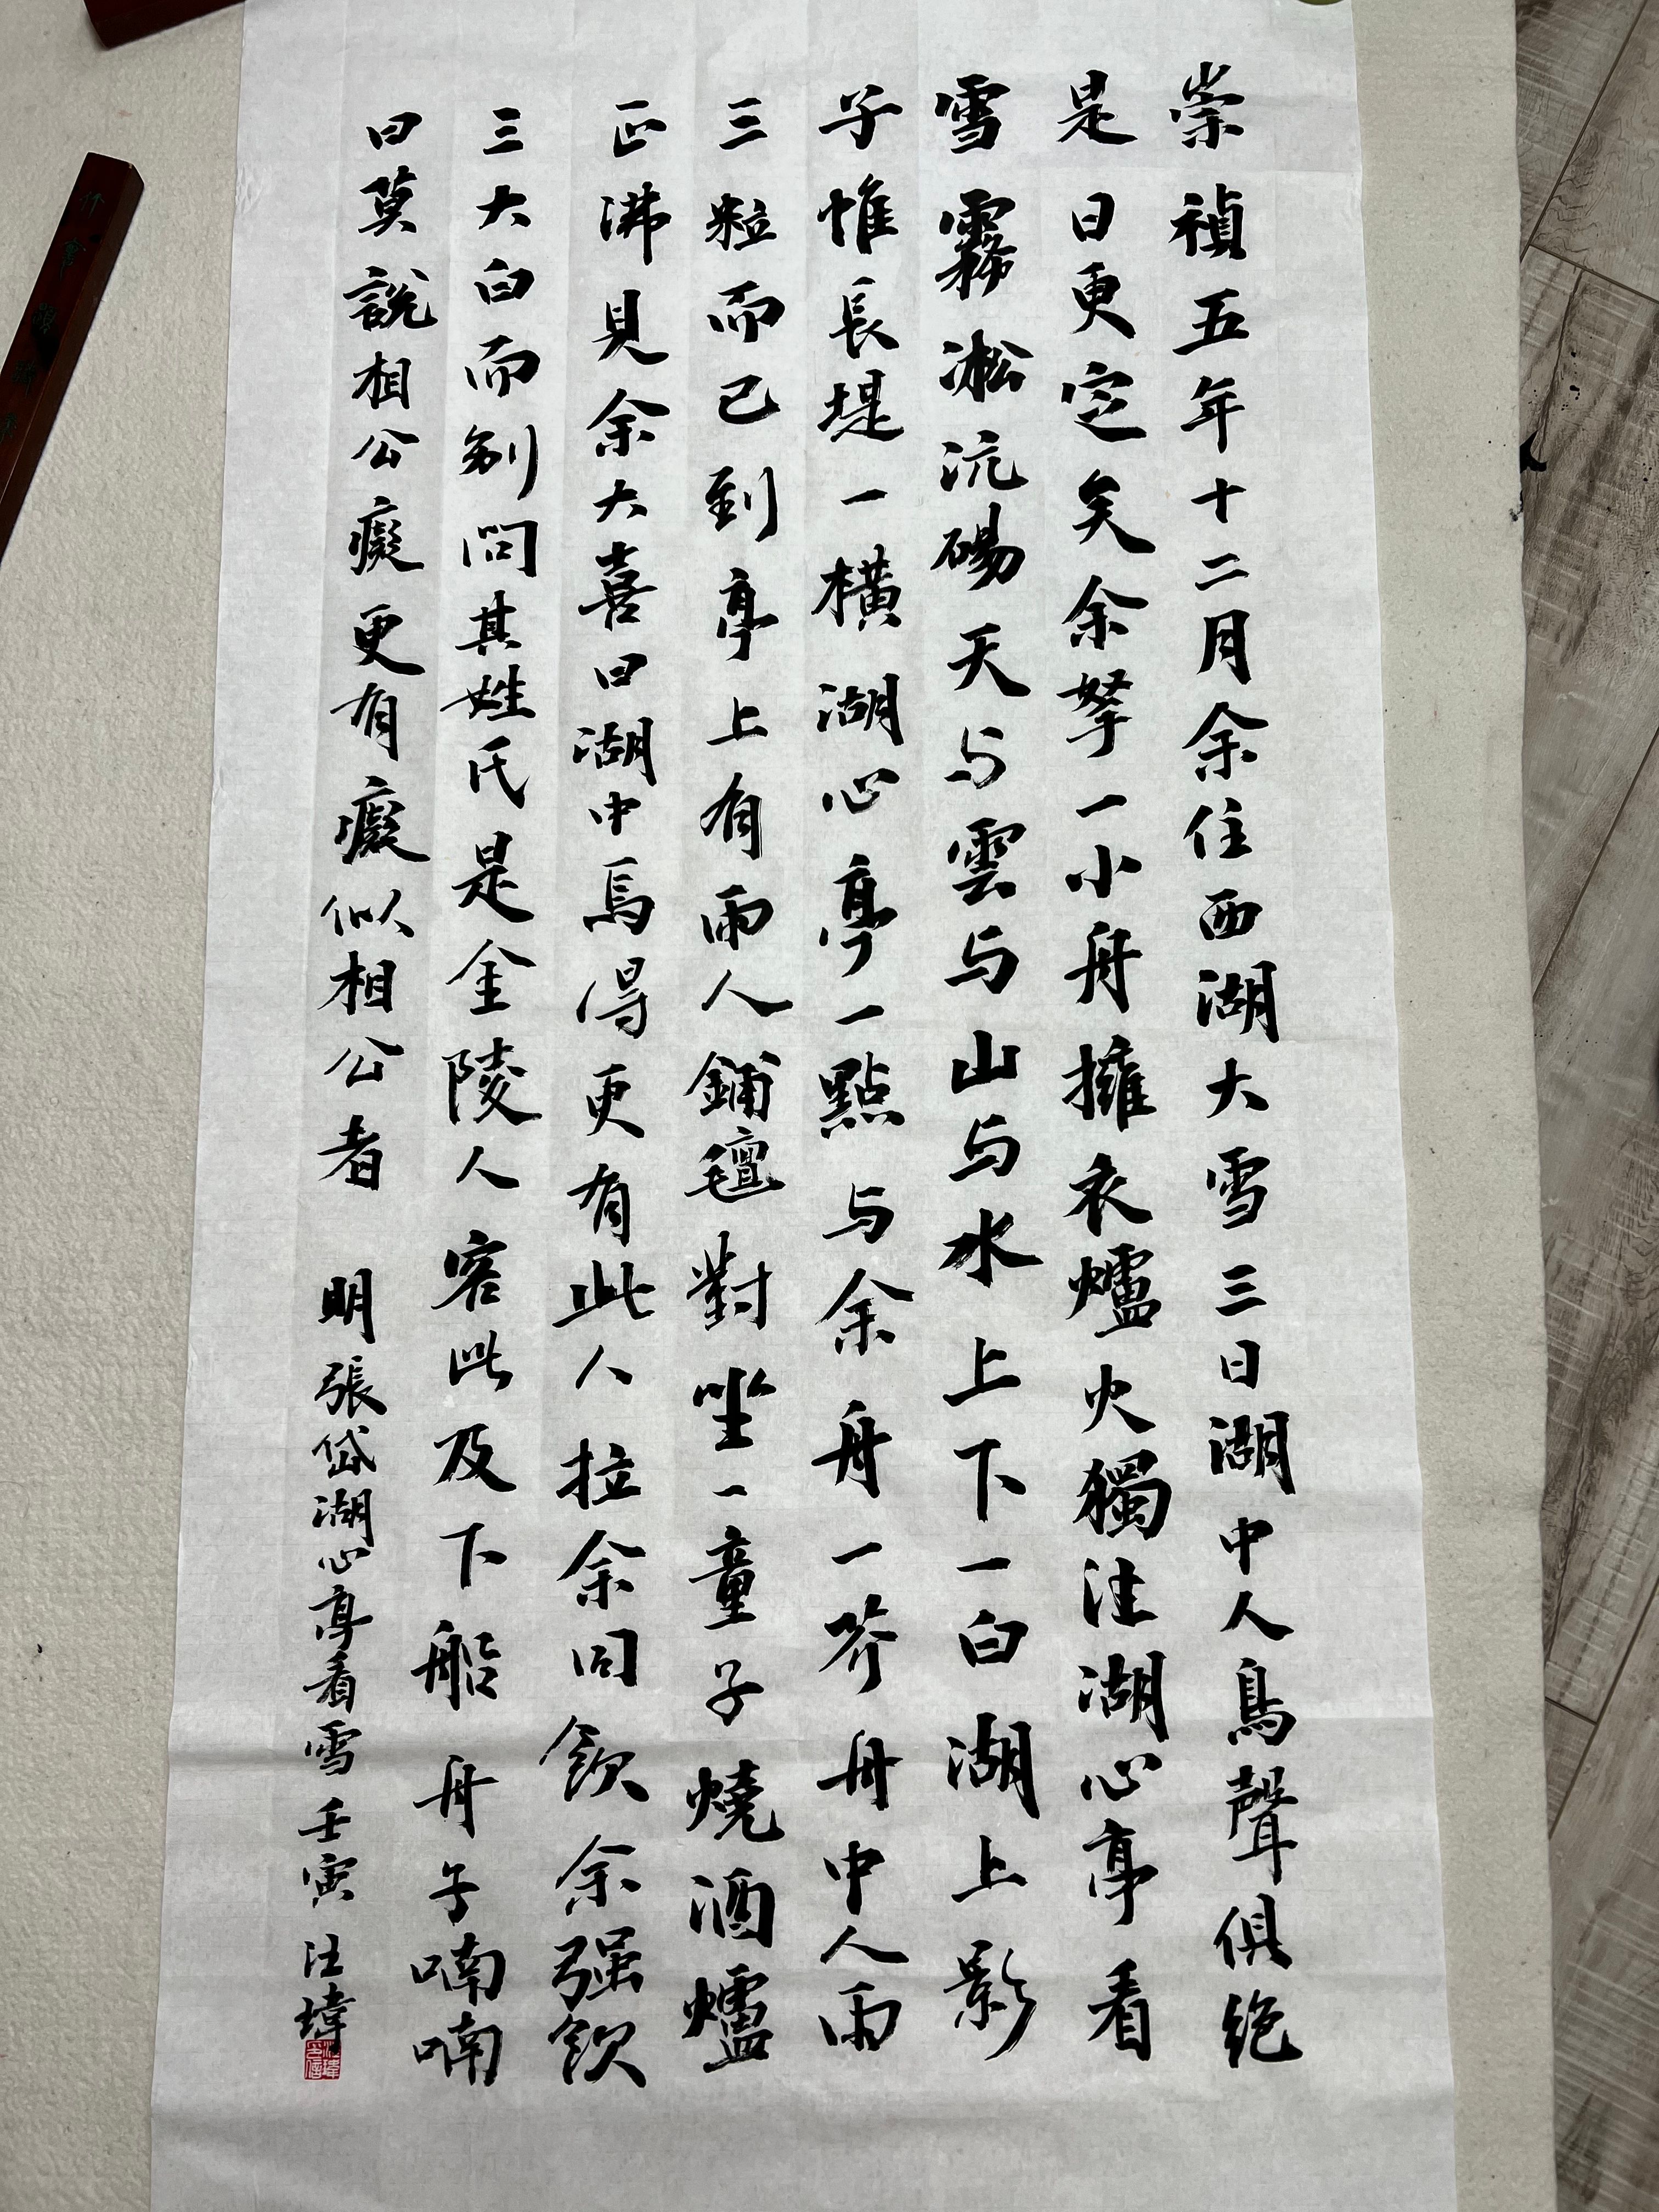 崇禎五年十二月余住西湖大雪三日湖中人鳥聲俱絶
是日更定矣余拏一小舟擁衣爐火獨往湖心亭看
雪霧凇沆碭天与雲与山与水上下一白湖上影
子惟長堤一橫湖心亭一點与余舟一芥舟中人兩
三粒而已到亭上有兩人鋪氊對坐一童子燒酒爐
正沸見余大喜曰湖中焉得更有此人拉余同飲余强飲
三大白而别問其姓氏是金陵人客此及下船舟子喃喃
曰莫說相公癡更有癡似相公者 明張岱湖心亭看雪 壬寅 汪瑋